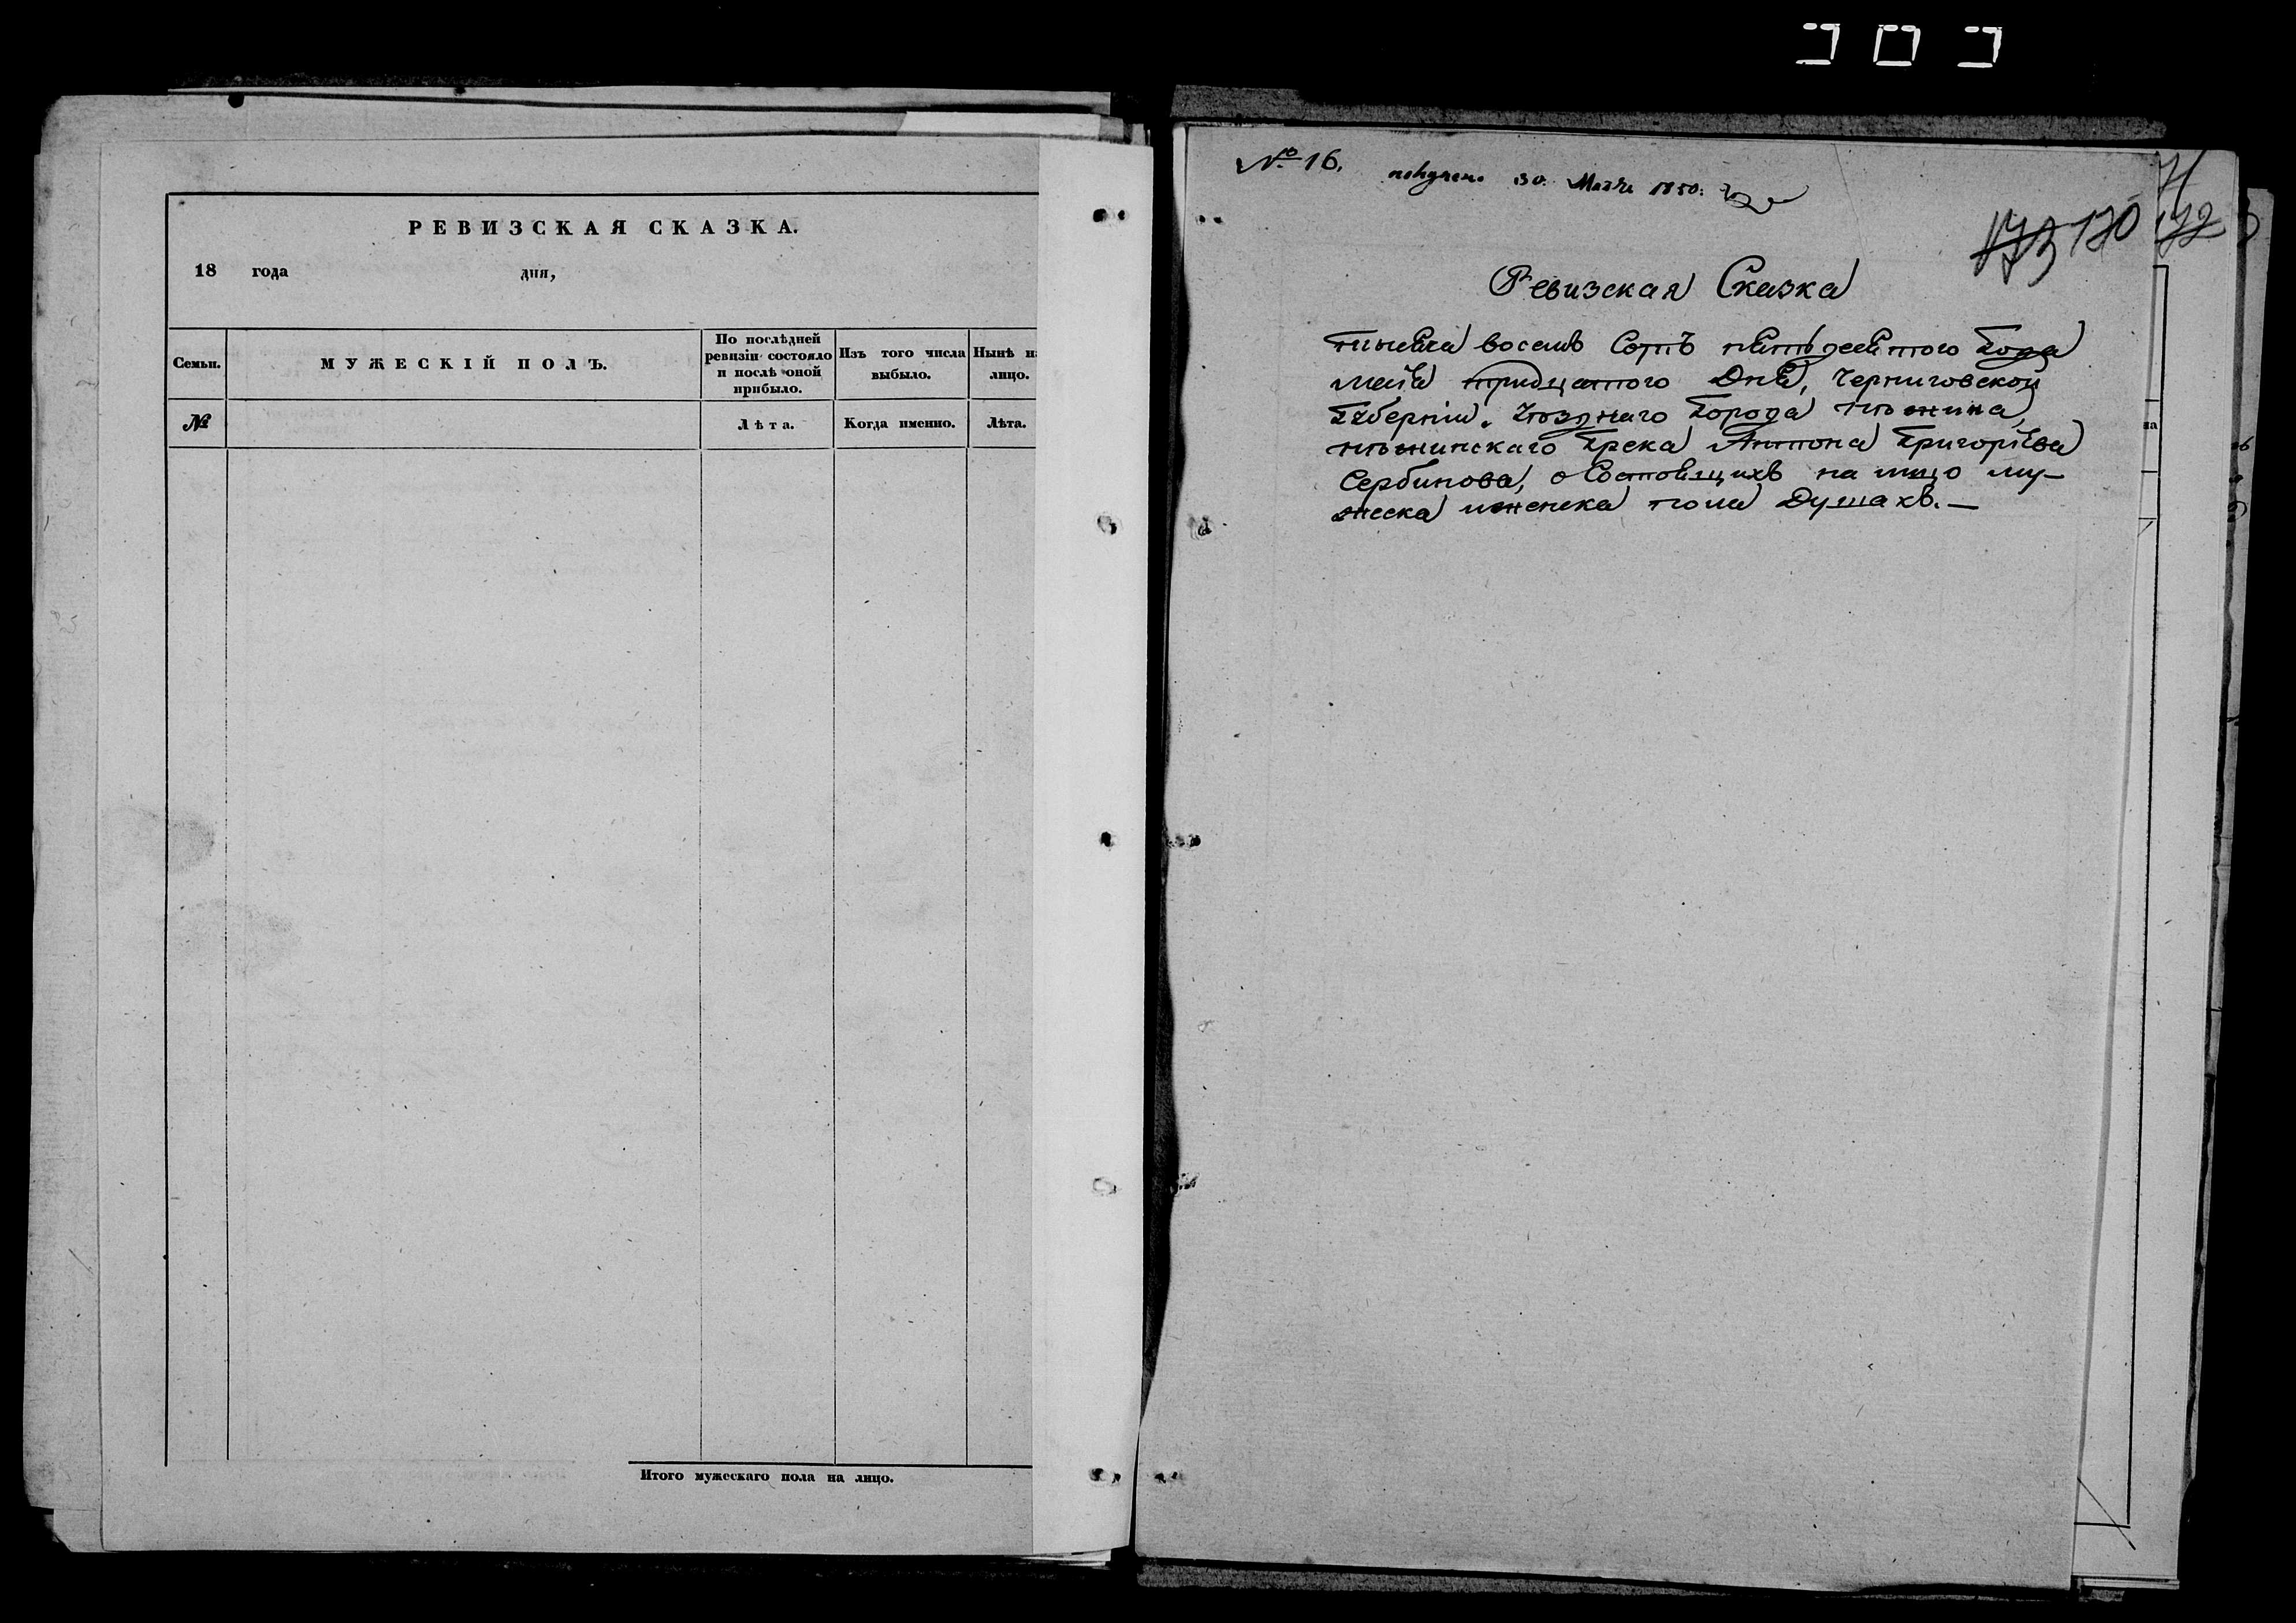 РЕВИЗСКАЯ СКАЗКА.
18 года дня,
Семьи.
МУЖЕСКІЙ ПОЛЪ.
По послѣдней
ревизіи состояло
и послѣ оной
прибыло.
Изъ того числа
выбыло.
Нынѣ н
лицо.
№
Лѣта.
Когда именно.
Лѣта.
Итого мужескаго пола на лицо.
№ 16.
получено 30. Маія 1850.
173 170 172
Ревизская Сказка
тысяча восемь Сотъ пятьдесятого Года
маія тридцатого Дня, Черниговской
Губерніи. Уѣзднаго Города Нѣжина,
нѣжинскаго Грека Антона Григоріева
Сербинова, о Состоящихъ на лицо му-
жеска и женска пола Душахъ.—
на